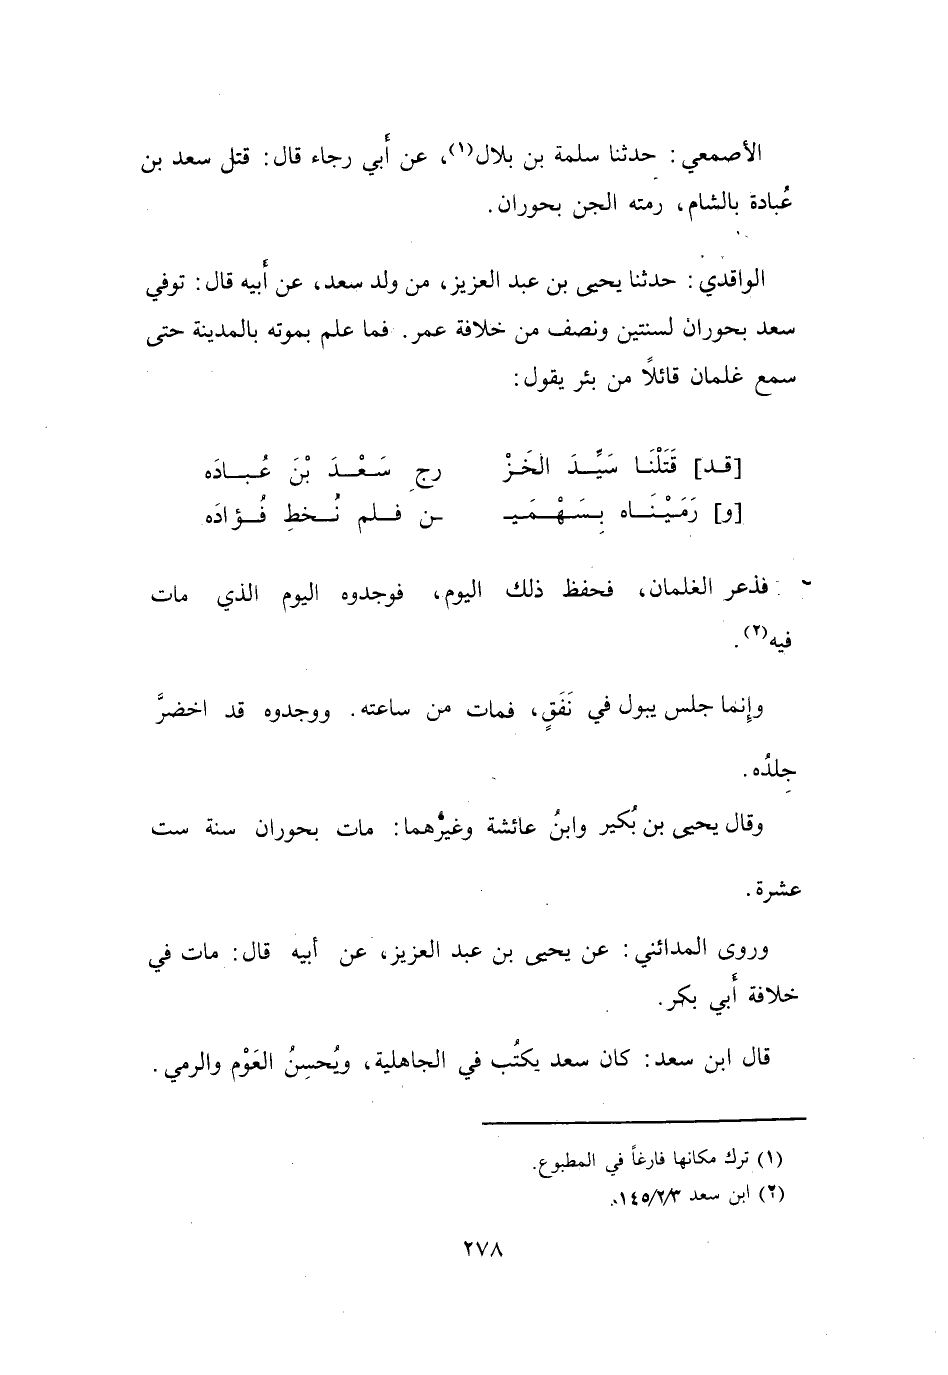 الأصمعي: حدثنا سلمة بن بلال(١)، عن أَبي رجاء قال: قتل سعد بن
عُبادة بالشام، رمته الجن بحوران.
الواقدي: حدثنا يحيى بن عبد العزيز، من ولد سعد، عن أَبيه قال: توفي
سعد بحوران لسنتين ونصف من خلافة عمر. فما علم بموته بالمدينة حتى
سمع غلمان قائلاً من بئر يقول:
[قد] قَتَلْنَا سَيِّدَ الخَزْ رجِ سَعْدَ بْنَ عُبادَه
[و] رَمَيْنَاه بِسَهْمَيـ ـن فلم نُخطِ فُؤادَه
فذعر الغلمان، فحفظ ذلك اليوم، فوجدوه اليوم الذي مات
فيه(٢).
وإنما جلس يبول في نَفَقٍ، فمات من ساعته. ووجدوه قد اخضرَّ
جلدُه.
وقال يحيى بن بُكير وابنُ عائشة وغيرُهما: مات بحوران سنة ست
عشرة.
وروى المدائني: عن يحيى بن عبد العزيز، عن أبيه قال: مات في
خلافة أَبي بكر.
قال ابن سعد: كان سعد يكتُب في الجاهلية، ويُحسِنُ العَوْم والرمي.
(١) ترك مكانها فارغاً في المطبوع.
(٢) ابن سعد ١٤٥/٢/٣.
٢٧٨